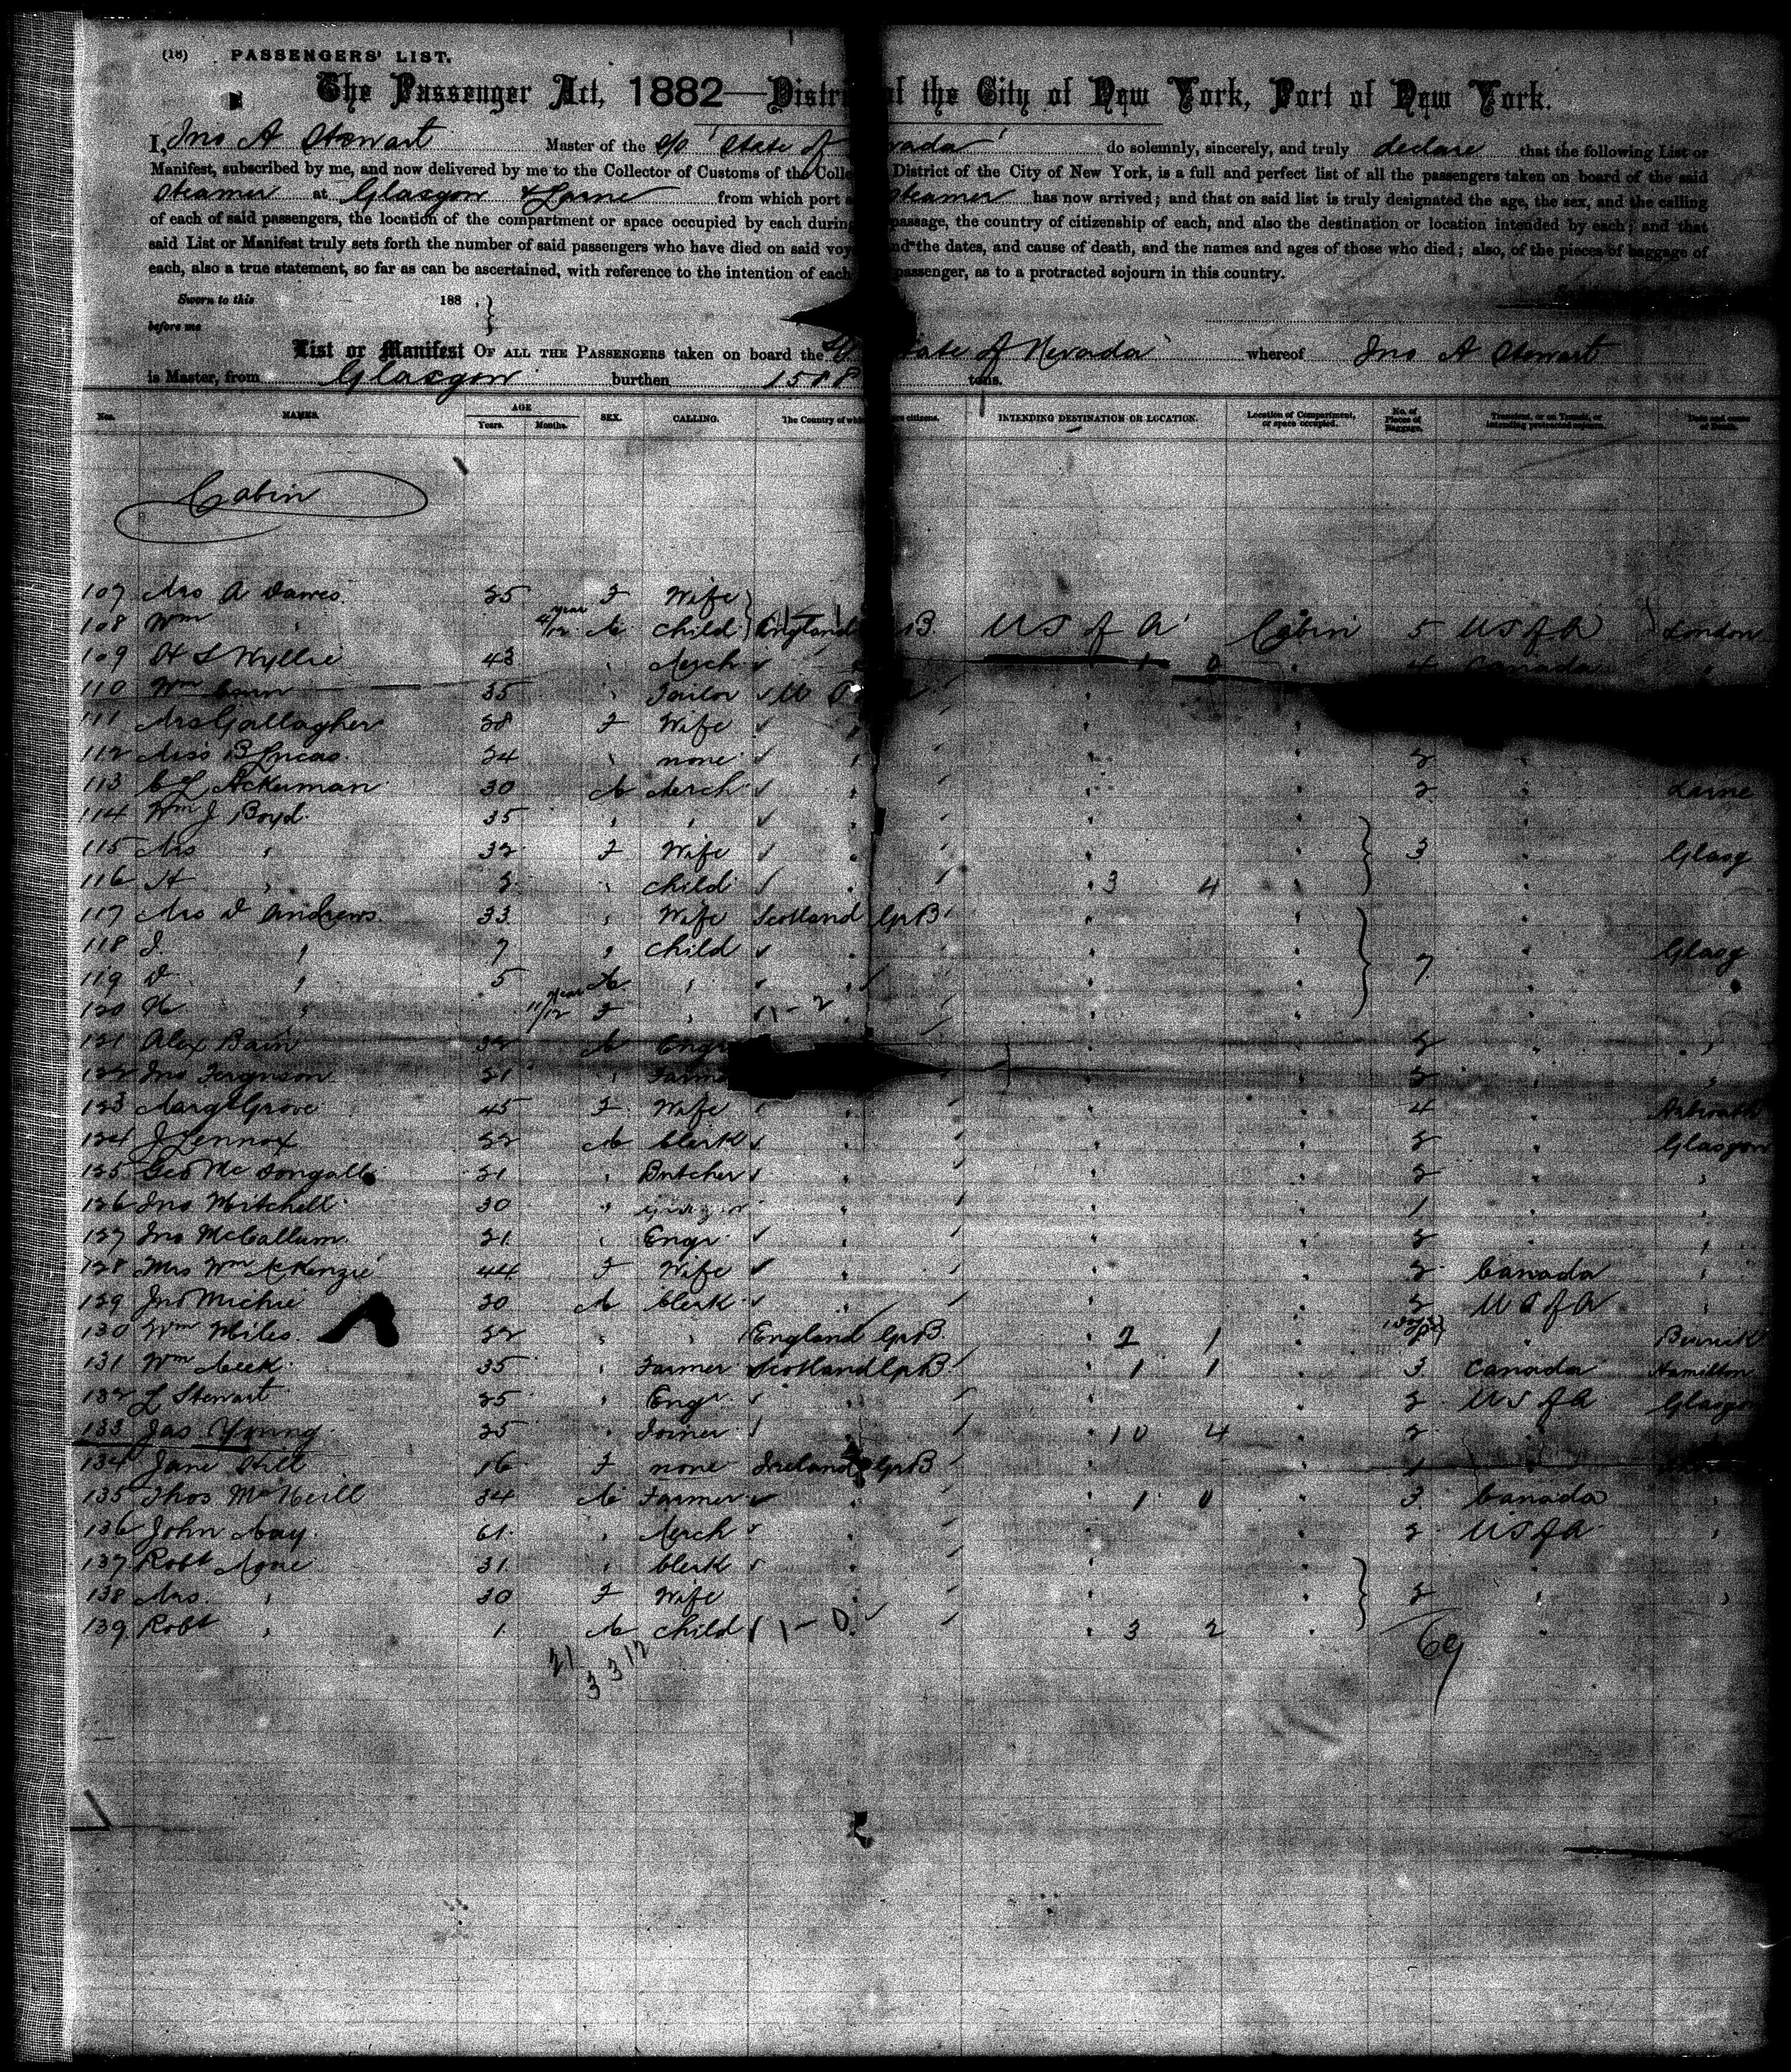 (18) PASSENGERS' LIST.
The Passenger Act, 1882—District of the City of New York, Port of New York.
I, Jno A Stewart Master of the S/S 'State of Nevada' do solemnly, sincerely, and truly declare that the following List or
Manifest, subscribed by me, and now delivered by me to the Collector of Customs of the Collection District of the City of New York, is a full and perfect list of all the passengers taken on board of the said
Steamer at Glasgow & Larne from which port said Steamer has now arrived; and that on said list is truly designated the age, the sex, and the calling
of each of said passengers, the location of the compartment or space occupied by each during passage, the country of citizenship of each, and also the destination or location intended by each; and that
said List or Manifest truly sets forth the number of said passengers who have died on said voyage and the dates, and cause of death, and the names and ages of those who died; also, of the pieces of baggage of
each, also a true statement, so far as can be ascertained, with reference to the intention of each passenger, as to a protracted sojourn in this country.
Sworn to this 188 .
before me
List or Manifest OF ALL THE PASSENGERS taken on board the State of Nevada whereof Jno A Stewart
is Master, from Glasgow burthen tons.
Nos. NAMES. AGE Years. Months. SEX. CALLING. The Country of which they are citizens. INTENDING DESTINATION OR LOCATION. Location of Compartment, or space occupied. No. of Pieces of Baggage. Transient, or on Transit, or intending protracted sojourn. Date and cause of Death.
Cabin
107 Mrs A Dawes 25 F Wife
108 Wm " year M Child England GrB. US of A Cabin 5 US of A London
109 H L Wyllie 43 " Merch 1 0 4 Canada "
110 Wm 35 " Tailor
111 Mrs Gallagher 28 F Wife
112 Miss B Lucas 24 " none 2
113 C L Ackerman 30 M Merch 2 " Larne
114 Wm J Boyd 35 " "
115 Mrs " 32 F Wife 3 " Glasg
116 H " 2 " Child 3 4
117 Mrs D Andrews 33 " Wife Scotland GrB
118 J " 7 " Child Glasg
119 D " 5 M " 7 "
120 " 11/12 year F " 11 - 2
121 Alex Bain 32 M Engr 2 " "
122 Jno Ferguson 21 " Farmer 2 " "
123 Margt Grove 45 F Wife 4 " Arbroath
124 J Lennox 22 M Clerk 2 " Glasgow
125 Geo McDougall 21 " Butcher 2 " "
126 Jno Mitchell 30 " 1 " "
127 Jno McCallum 21 " Engr 2 " "
128 Mrs Wm McKenzie 44 F Wife 2 Canada "
129 Jno Michie 20 M Clerk 2 US of A "
130 Wm Miles 22 " " England GrB. 2 1 "
131 Wm Meek 35 " Farmer Scotland GrB 1 1 3 Canada Hamilton
132 L Stewart 25 " Engr 2 US of A Glasgow
133 Jas Young 25 " Joiner 10 4 2
134 Jane Hill 16 F none Ireland GrB 1
135 Thos McNeill 34 M Farmer 1 0 3 Canada "
136 John May 61 " Merch 2 US of A "
137 Robt 31 " Clerk
138 Mrs " 30 F Wife 2 " "
139 Robt " 1 M Child 1 - 0 3 2 "
21 3 3 12
69